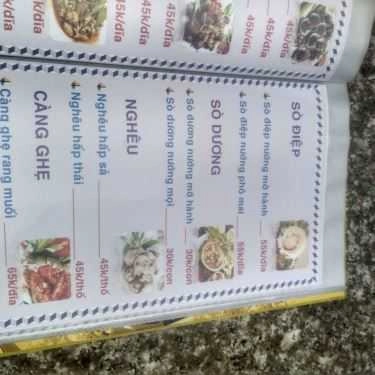 45k/dĩa
45k/dĩa
45k/dĩa
45k/dĩa
45k/dĩa
SÒ ĐIỆP
Sò điệp nướng mỡ hành 55k/dĩa
Sò điệp nướng phô mai 55k/dĩa
SÒ DƯƠNG
Sò dương nướng mỡ hành 30k/con
Sò dương nướng mọi 30k/con
NGHÊU
Nghêu hấp sả 45k/thố
Nghêu hấp thái 45k/thố
CÀNG GHẸ
Càng ghẹ rang muối 65k/dĩa